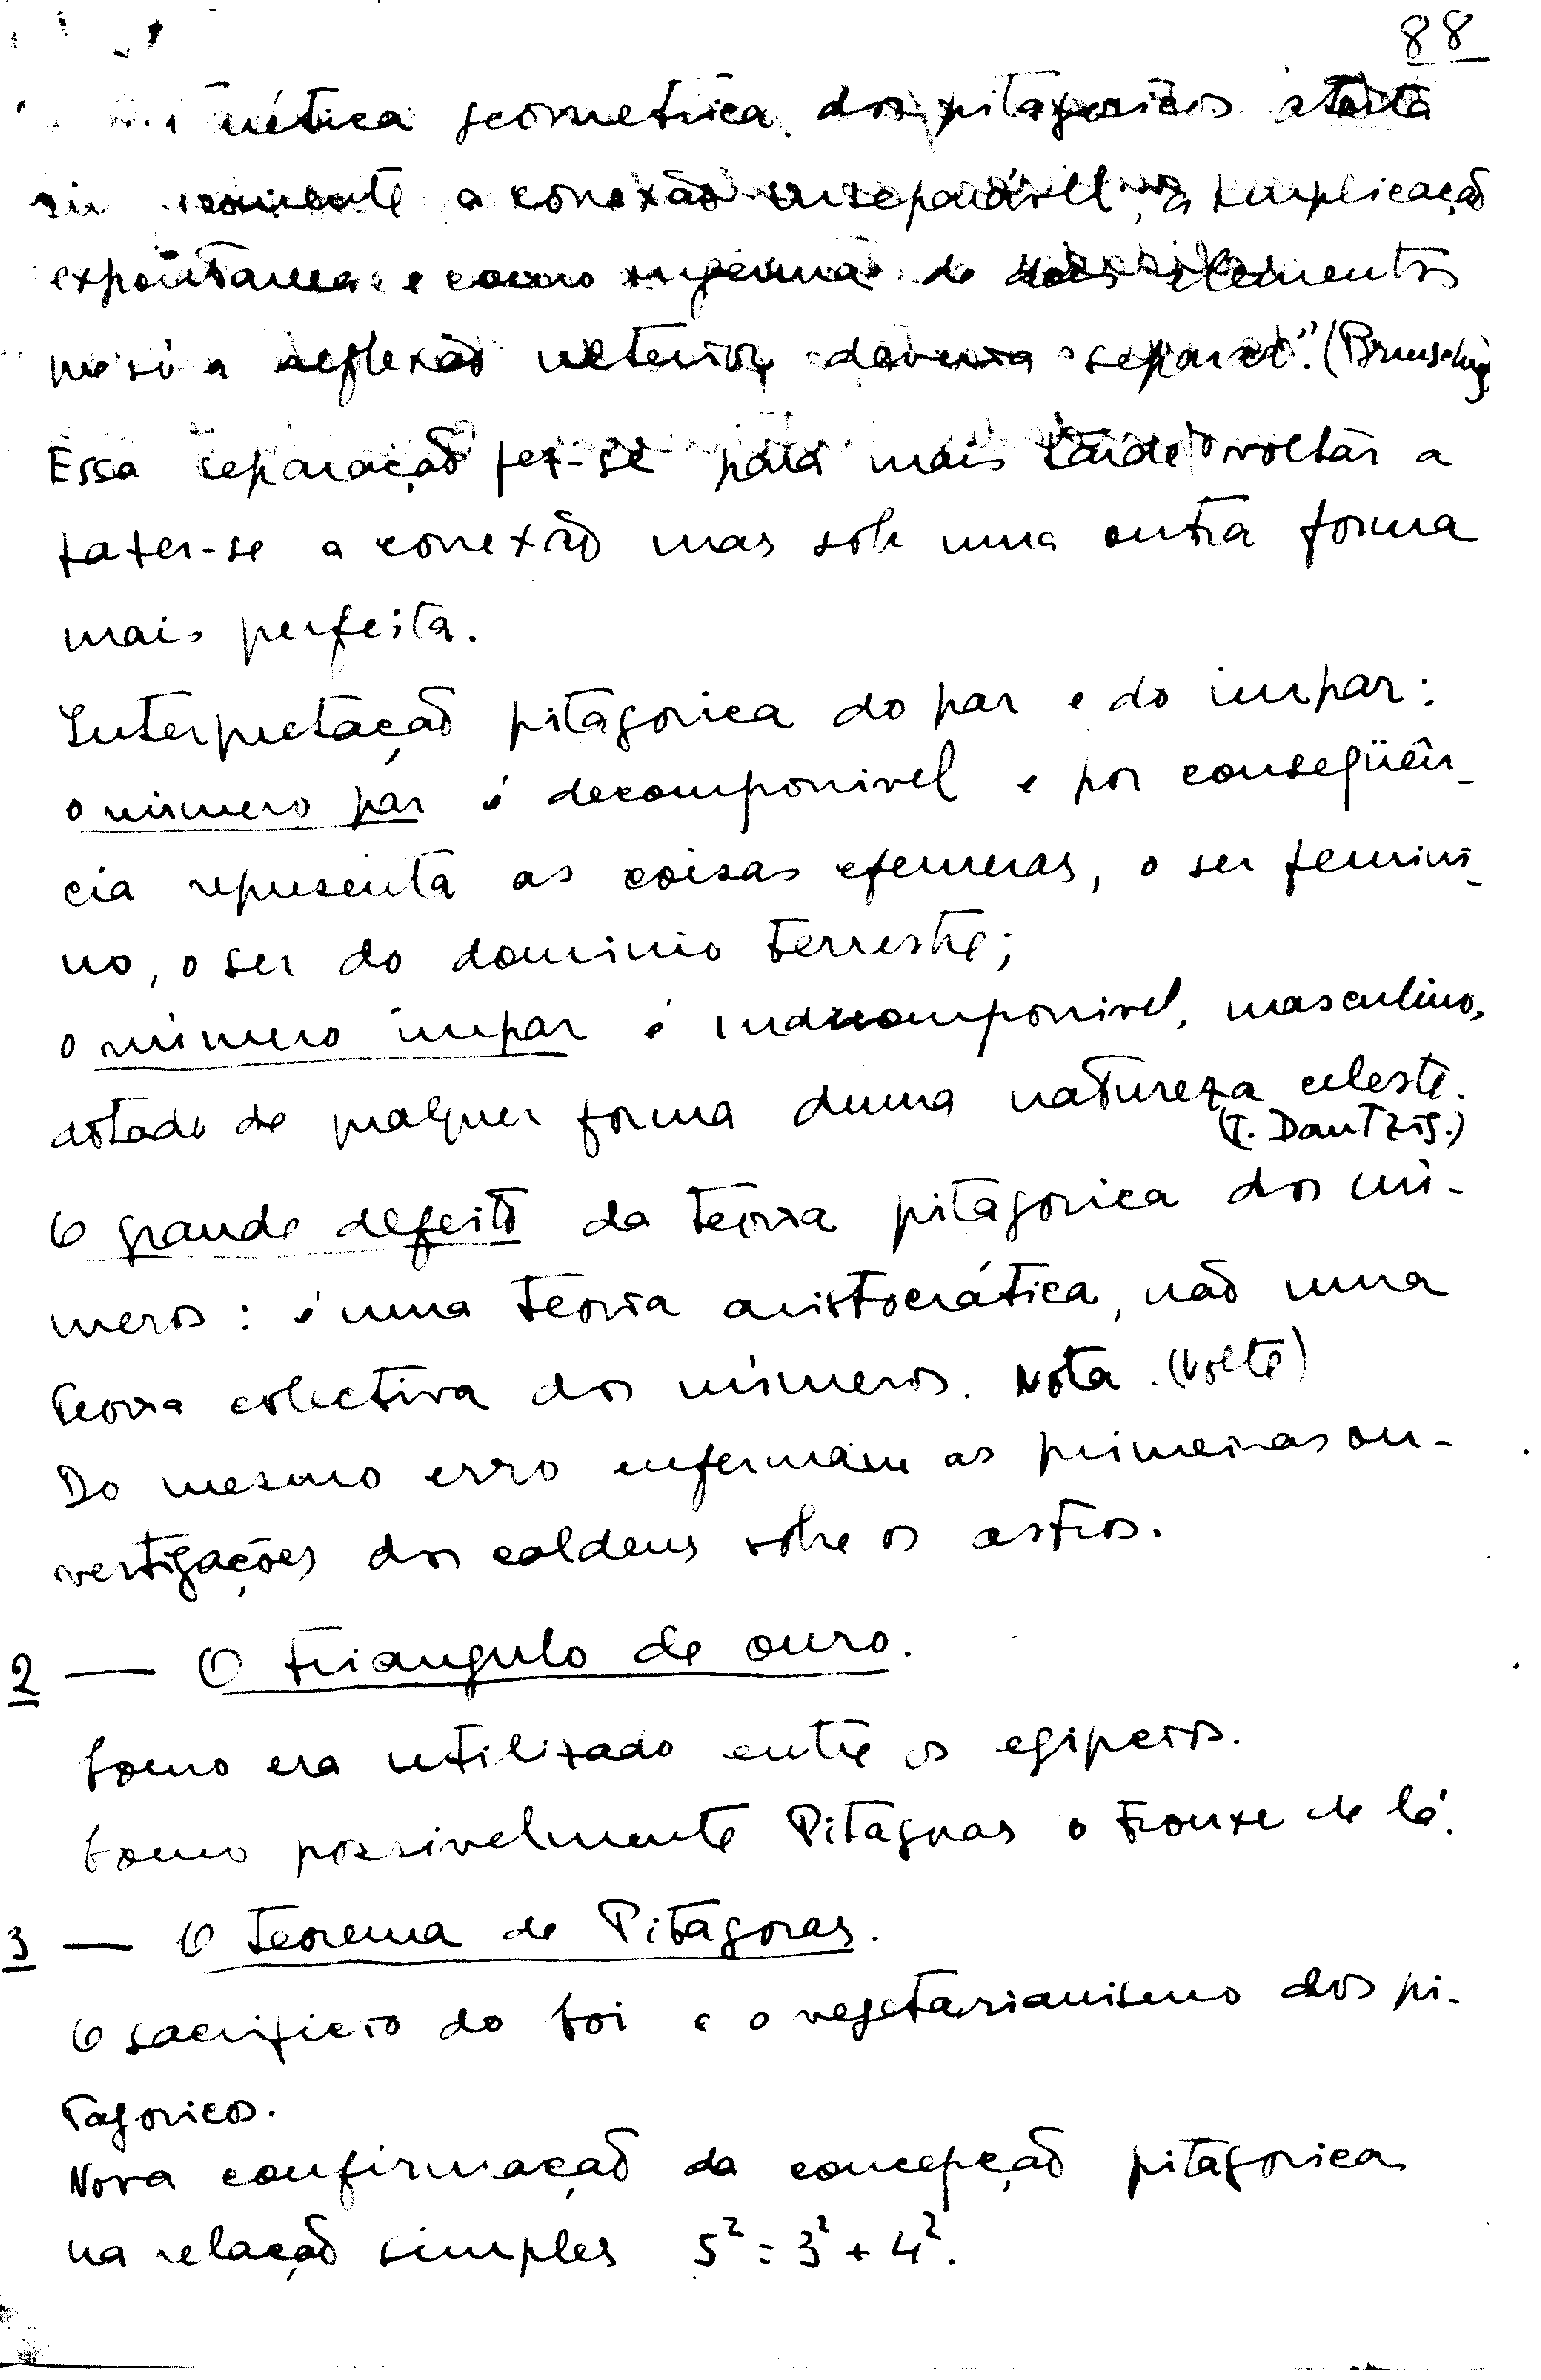 88
mética geometrica dos pitagoricos atesta
a conexão inseparável, a implicação
expontanea e como ingenua de dois elementos
que só a reflexão ulterior deveria separar." (Brunschvig
Essa separação fez-se para mais tarde voltar a
fazer-se a conexão mas sob uma outra forma
mais perfeita.
Interpretação pitagorica do par e do impar:
o número par é decomponivel e por conseqüên-
cia representa as coisas efemeras, o ser femini-
no, o ser do dominio terrestre;
o número impar é indecomponivel, masculino,
dotado de qualquer forma duma natureza celeste.
(T. Dantzig.)
O grande defeito da teoria pitagorica dos nú-
meros: é uma teoria aristocrática, não uma
teoria colectiva dos números. Nota. (Volte)
Do mesmo erro enfermam as primeiras in-
vestigações dos caldeus sobre os astros.
2 — O triangulo de ouro.
Como era utilizado entre os egipcios.
Como possivelmente Pitagoras o trouxe de lá.
3 — O teorema de Pitagoras.
O sacrificio do boi e o vegetarianismo dos pi-
tagoricos.
Nova confirmação da concepção pitagorica
na relação simples 5² = 3² + 4².